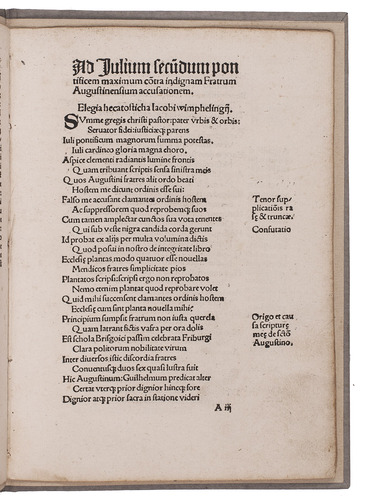 Ad Julium secũdum pon
tificem maximum cõtra indignam Fratrum
Augustinensium accusationem.
Elegia hecatosticha Iacobi wimphelingij.
SVmme gregis christi pastor: pater vrbis & orbis:
Seruator fidei: iusticiæq; parens
Iuli pontificum magnorum summa potestas.
Iuli cardineo gloria magna choro.
Aspice clementi radiantis lumine frontis
Quam tribuant scriptis sensa sinistra meis
Quos Augustini fratres alit ordo beati
Hostem me dicunt ordinis esse sui:
Falso me accusant clamantes ordinis hostem
Ac suppressorem quod reprobemq; suos
Cum tamen amplectar cunctos sua vota tenentes
Qui sub veste nigra candida corda gerunt
Id probat ex alijs per multa volumina dictis
Quod posui in nostro de integritate libro
Ecclesię plantas modo quatuor esse nouellas
Mendicos fratres simplicitate pios
Plantatos scripsi: scripsi ergo non reprobatos
Nemo etenim plantat quod reprobare volet
Quid mihi succensent clamantes ordinis hostem
Ecclesię cum sint planta nouella mihi:
Principium sumpsit fratrum non iusta querela
Quam latrant fictis vafra per ora dolis
Est schola Brisgoici passim celebrata Friburgi
Clara politorum nobilitate virum
Inter diuersos istic discordia fratres
Conuentusq; duos sex quasi lustra fuit
Hic Augustinum: Guilhelmum predicat alter
Certat vterq; prior dignior hincq; fore
Dignior atq; prior sacra in statione videri
A iij
Tenor sup
plicatiõis ra
sę & truncæ.
Confutatio
Origo et cau
sa scripturę
meę de scťo
Augustino.